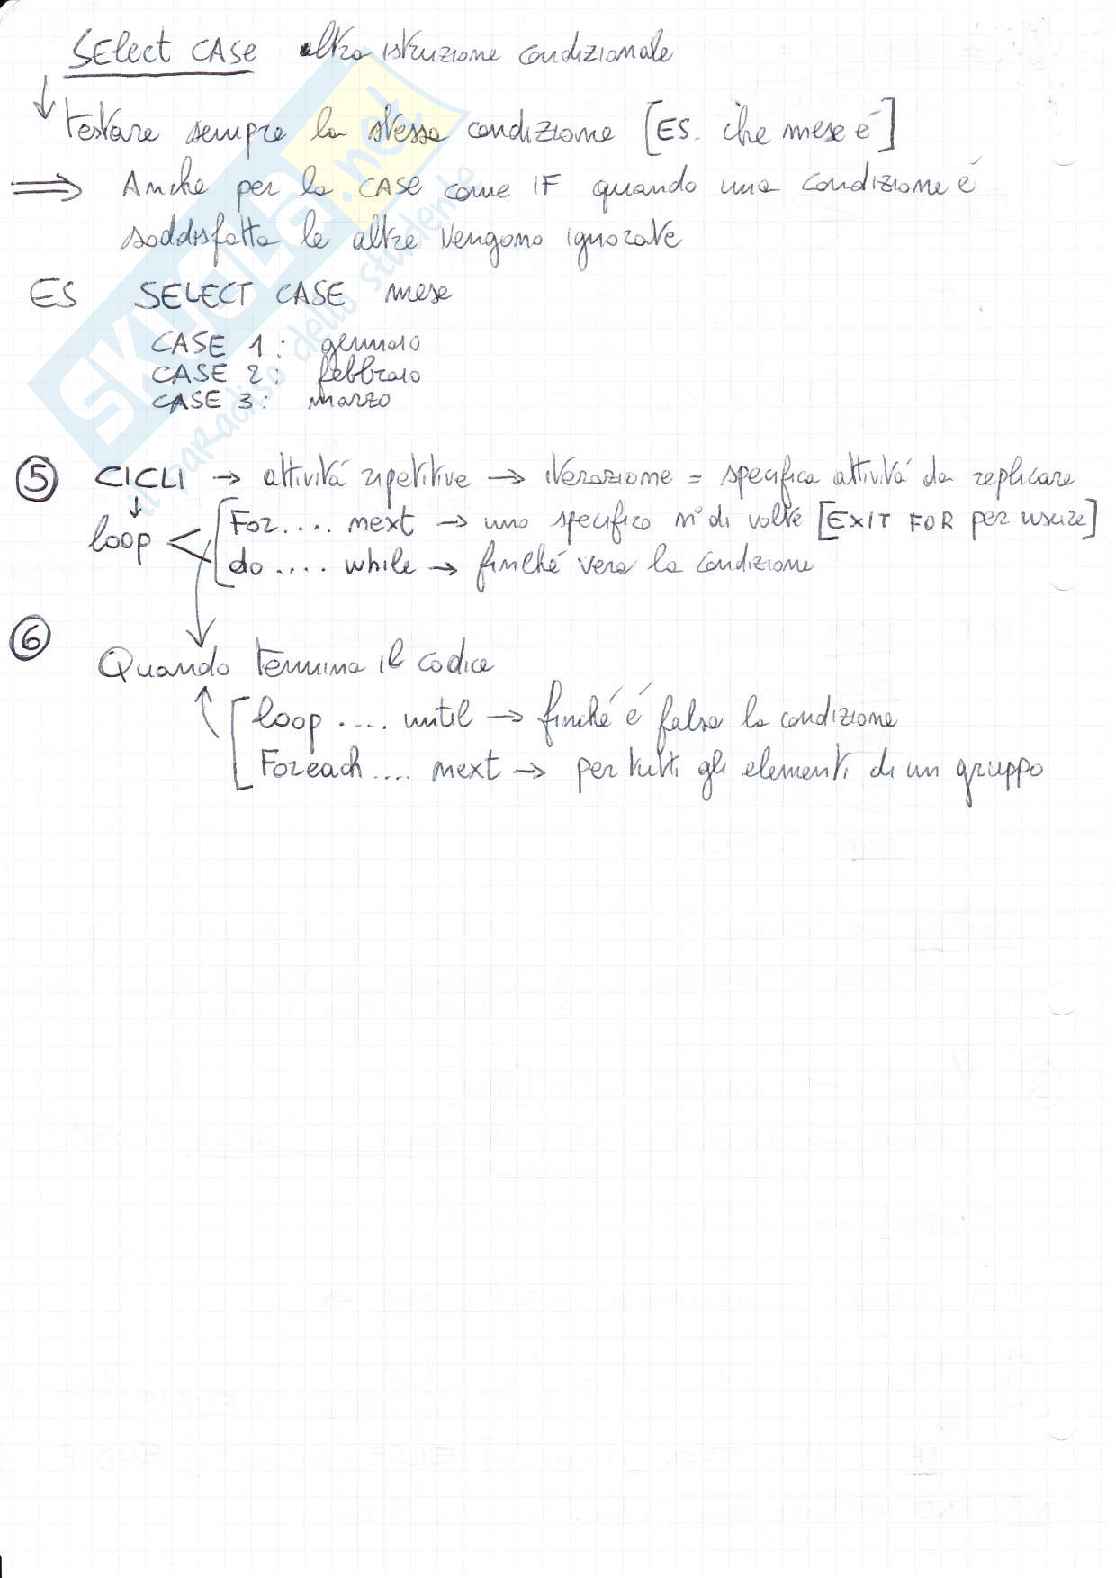 SElect CASE altra istruzione condizionale
↓ testare sempre la stessa condizione [ES. che mese é]
⇒ Anche per la CASE come IF quando una condizione é
soddisfatta le altre vengono ignorate
ES SELECT CASE mese
CASE 1 : gennaio
CASE 2 : febbraio
CASE 3 : marzo
⑤ CICLI → attivitá ripetitive → iterazione = specifica attivitá da replicare
↓
loop < [For.... next → uno specifico n° di volte [EXIT FOR per uscire]
[do .... while → finché vera la condizione
⑥
Quando termina il codice
[loop .... until → finché é falsa la condizione
[Foreach .... next → per tutti gli elementi di un gruppo
SKUOLA.net
il paradiso dello studente